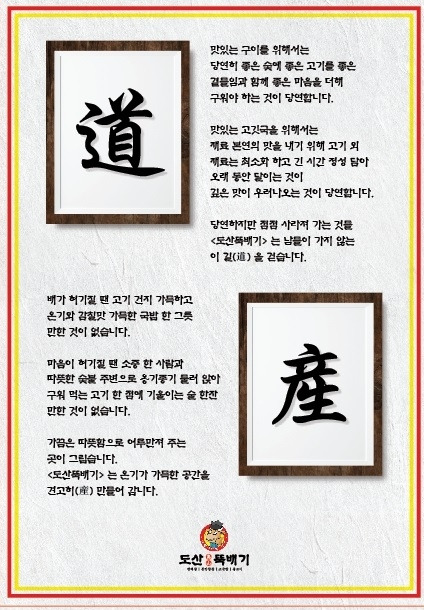 道
맛있는 구이를 위해서는
당연히 좋은 숯에 좋은 고기를 좋은
곁들임과 함께 좋은 마음을 더해
구워야 하는 것이 당연합니다.
맛있는 고깃국을 위해서는
재료 본연의 맛을 내기 위해 고기 외
재료는 최소화 하고 긴 시간 정성 담아
오래 동안 달이는 것이
깊은 맛이 우러나오는 것이 당연합니다.
당연하지만 점점 사라져 가는 것들
<도산뚝배기> 는 남들이 가지 않는
이 길(道) 을 걷습니다.
배가 허기질 땐 고기 건지 가득하고
온기와 감칠맛 가득한 국밥 한 그릇
만한 것이 없습니다.
마음이 허기질 땐 소중 한 사람과
따뜻한 숯불 주변으로 옹기종기 둘러 앉아
구워 먹는 고기 한 점에 기울이는 술 한잔
만한 것이 없습니다.
가끔은 따뜻함으로 어루만져 주는
곳이 그립습니다.
<도산뚝배기> 는 온기가 가득한 공간을
견고히(産) 만들어 갑니다.
産
도산뚝배기